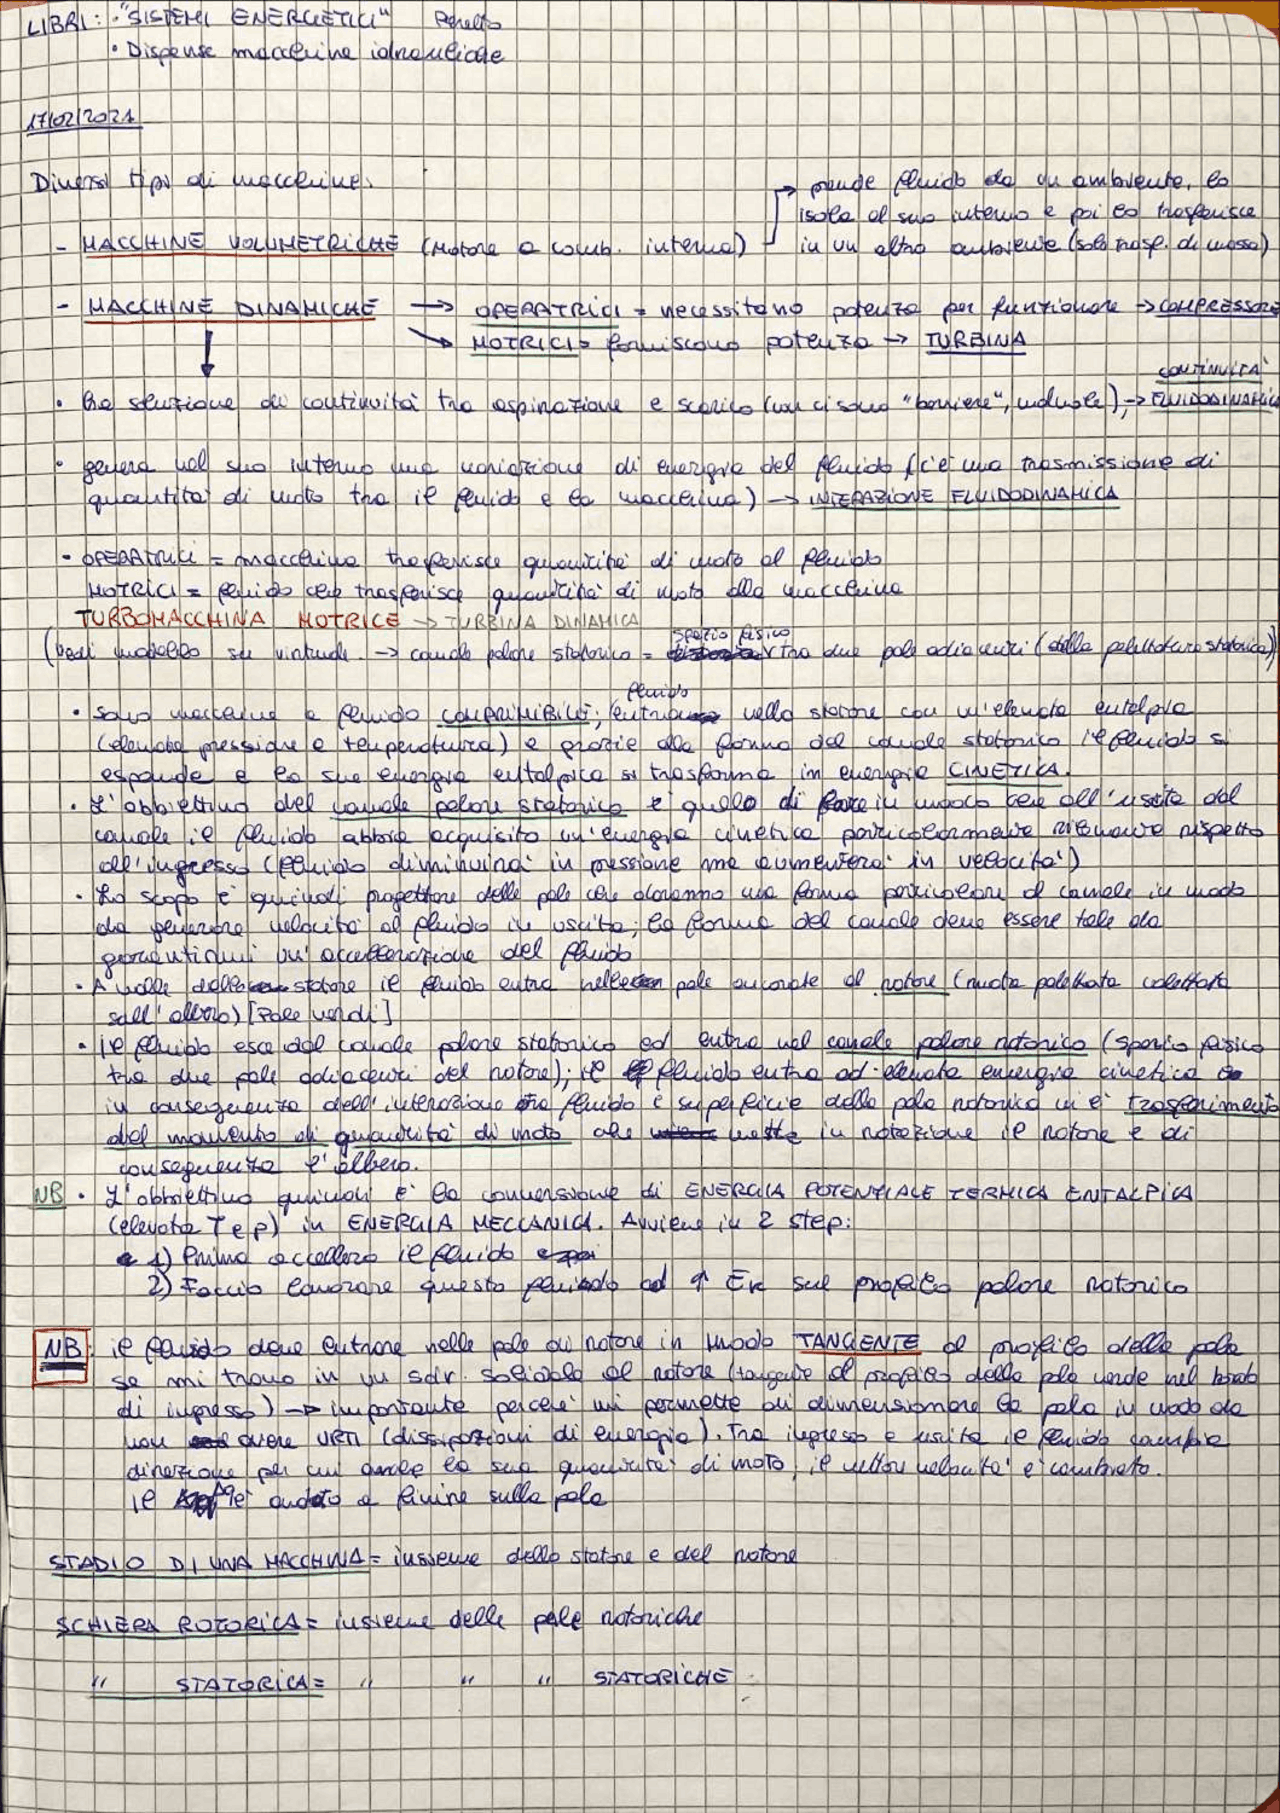 LIBRI: • "SISTEMI ENERGETICI" Peretto
• Dispense macchine idrauliche
17/02/2021
Diversi tipi di macchine:
- MACCHINE VOLUMETRICHE (Motore a comb. interna) → prende fluido da un ambiente, lo
isola al suo interno e poi lo trasferisce
in un altro ambiente (solo trasf. di massa)
- MACCHINE DINAMICHE → OPERATRICI = necessitano potenza per funzionare → COMPRESSORE
→ MOTRICI = forniscono potenza → TURBINA
• Ha soluzione di continuità tra aspirazione e scarico (non ci sono "barriere", valvole) → CONTINUITA' FLUIDODINAMICA
• genera nel suo interno una variazione di energia del fluido (c'è una trasmissione di
quantità di moto tra il fluido e la macchina) → INTERAZIONE FLUIDODINAMICA
• OPERATRICI = macchina trasferisce quantità di moto al fluido
MOTRICI = fluido che trasferisce quantità di moto alla macchina
TURBOMACCHINA MOTRICE → TURBINA DINAMICA
(vedi modello su virtuale → canale palare statorico = spazio fisico tra due pale adiacenti (della palettatura statorica))
• Sono macchine a fluido COMPRIMIBILE; fluido entra nello statore con un'elevata entalpia
(elevata pressione e temperatura) e grazie alla forma del canale statorico il fluido si
espande e la sua energia entalpica si trasforma in energia CINETICA.
• L'obbiettivo del canale palare statorico è quello di fare in modo che all'uscita dal
canale il fluido abbia acquisito un'energia cinetica particolarmente rilevante rispetto
all'ingresso (fluido diminuirà in pressione ma aumenterà in velocità)
• Lo scopo è quindi progettare delle pale che daranno una forma particolare al canale in modo
da generare velocità al fluido in uscita; la forma del canale deve essere tale da
garantirmi un'accellerazione del fluido
• A valle dello statore il fluido entra nelle pale ancorate al rotore (ruota palettata calettata
sull'albero) [Pale verdi]
• il fluido esce dal canale palare statorico ed entra nel canale palare rotorico (spazio fisico
tra due pale adiacenti del rotore); il fluido entra ad elevata energia cinetica
in conseguenza dell'interazione tra fluido e superficie della pala rotorica vi è trasferimento
del momento di quantità di moto che mette in rotazione il rotore e di
conseguenza l'albero.
NB • L'obbiettivo quindi è la conversione di ENERGIA POTENZIALE TERMICA ENTALPICA
(elevata T e p) in ENERGIA MECCANICA. Avviene in 2 step:
1) Prima accellero il fluido
2) Faccio lavorare questo fluido ad ↑ Ek sul profilo palare rotorico
NB: il fluido deve entrare nelle pale di rotore in modo TANGENTE al profilo della pala
se mi trovo in un sdr. solidale al rotore (tangente al profilo della pala verde nel bordo
di ingresso) → importante perchè mi permette di dimensionare la pala in modo da
non avere URTI (dissipazioni di energia). Tra ingresso e uscita il fluido cambia
direzione per cui anche la sua quantità di moto, il vettore velocità è cambiato.
il è andato a finire sulla pala
STADIO DI UNA MACCHINA = insieme dello statore e del rotore
SCHIERA ROTORICA = insieme delle pale rotoriche
" STATORICA = " " " STATORICHE